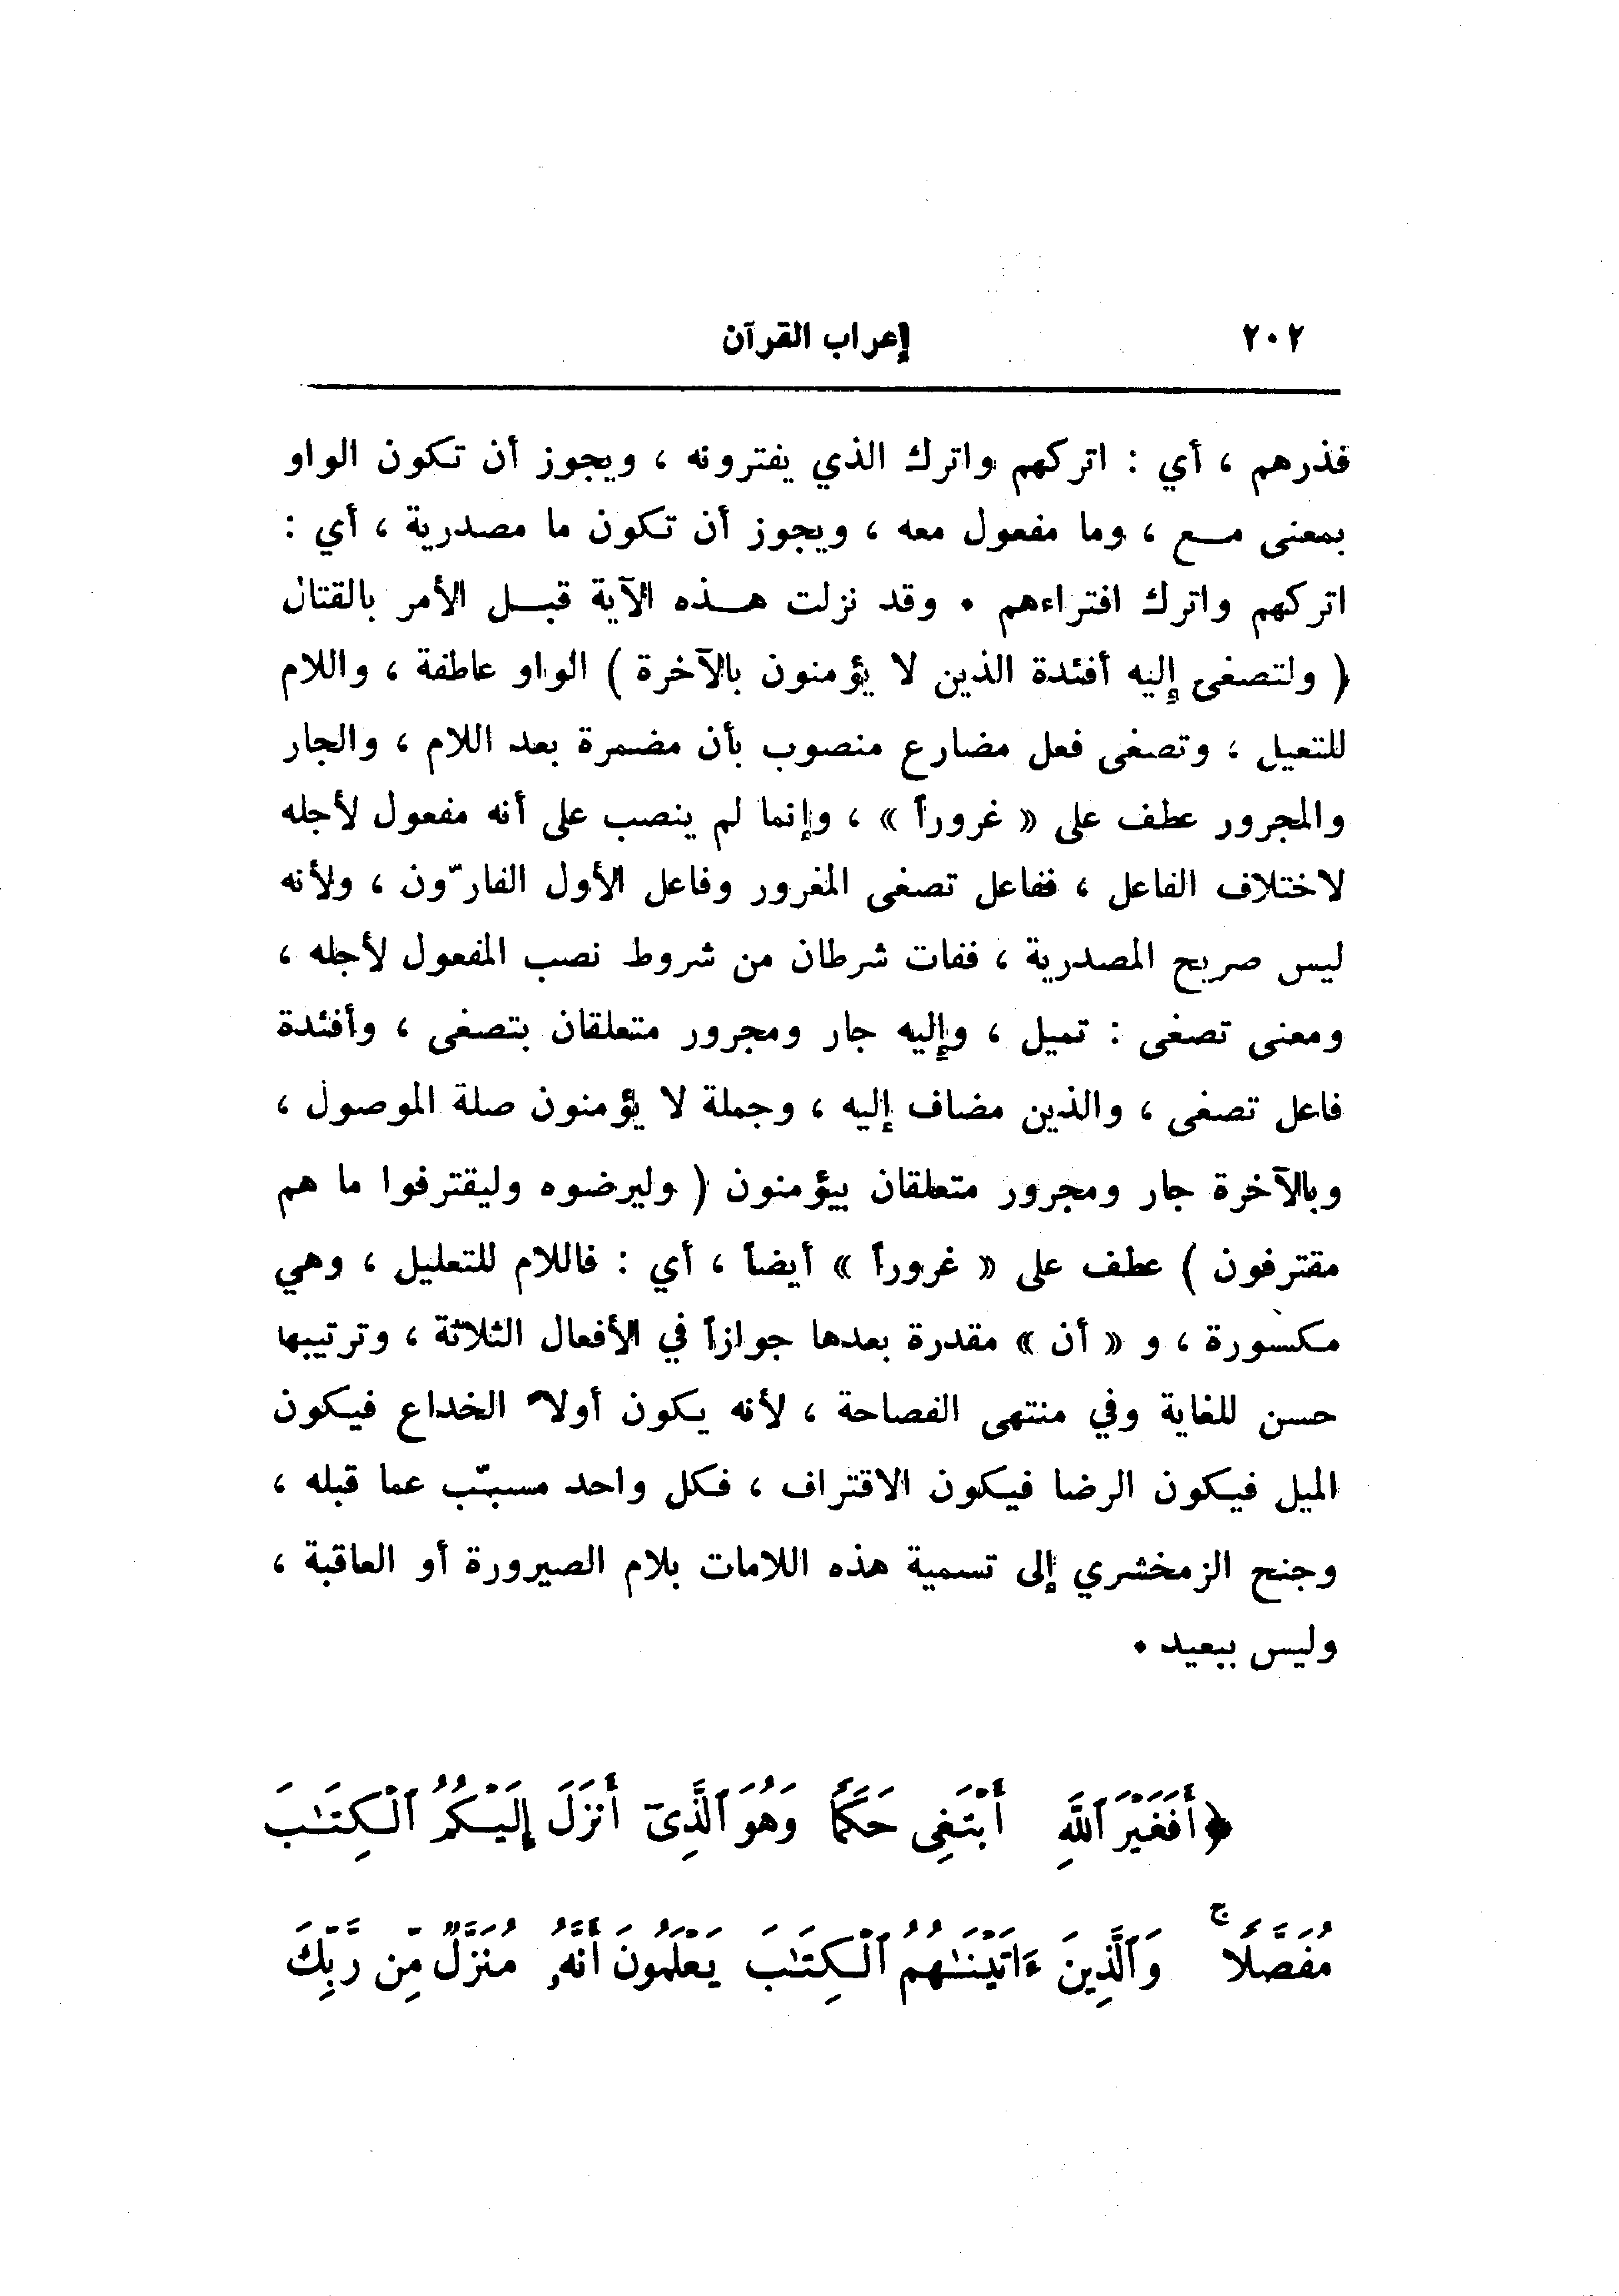 ٢٠٢ إعراب القرآن
فذرهم ، أي : اتركهم واترك الذي يفترونه ، ويجوز أن تكون الواو
بمعنى مع ، وما مفعول معه ، ويجوز أن تكون ما مصدرية ، أي :
اتركهم واترك افتراءهم . وقد نزلت هذه الآية قبل الأمر بالقتال
( ولتصغى إليه أفئدة الذين لا يؤمنون بالآخرة ) الواو عاطفة ، واللام
للتعيل ، وتصغى فعل مضارع منصوب بأن مضمرة بعد اللام ، والجار
والمجرور عطف على « غروراً » ، وإنما لم ينصب على أنه مفعول لأجله
لاختلاف الفاعل ، ففاعل تصغى المغرور وفاعل الأول الغارّون ، ولأنه
ليس صريح المصدرية ، ففات شرطان من شروط نصب المفعول لأجله ،
ومعنى تصغى : تميل ، وإليه جار ومجرور متعلقان بتصغى ، وأفئدة
فاعل تصغى ، والذين مضاف إليه ، وجملة لا يؤمنون صلة الموصول ،
وبالآخرة جار ومجرور متعلقان بيؤمنون ( وليرضوه وليقترفوا ما هم
مقترفون ) عطف على « غروراً » أيضاً ، أي : فاللام للتعليل ، وهي
مكسورة ، و « أن » مقدرة بعدها جوازاً في الأفعال الثلاثة ، وترتيبها
حسن للغاية وفي منتهى الفصاحة ، لأنه يكون أولاً الخداع فيكون
الميل فيكون الرضا فيكون الاقتراف ، فكل واحد مسبّب عما قبله ،
وجنح الزمخشري إلى تسمية هذه اللامات بلام الصيرورة أو العاقبة ،
وليس ببعيد .
﴿أَفَغَيْرَ ٱللَّهِ أَبْتَغِى حَكَمًا وَهُوَ ٱلَّذِىٓ أَنزَلَ إِلَيْكُمُ ٱلْكِتَـٰبَ
مُفَصَّلًا ۚ وَٱلَّذِينَ ءَاتَيْنَـٰهُمُ ٱلْكِتَـٰبَ يَعْلَمُونَ أَنَّهُۥ مُنَزَّلٌ مِّن رَّبِّكَ